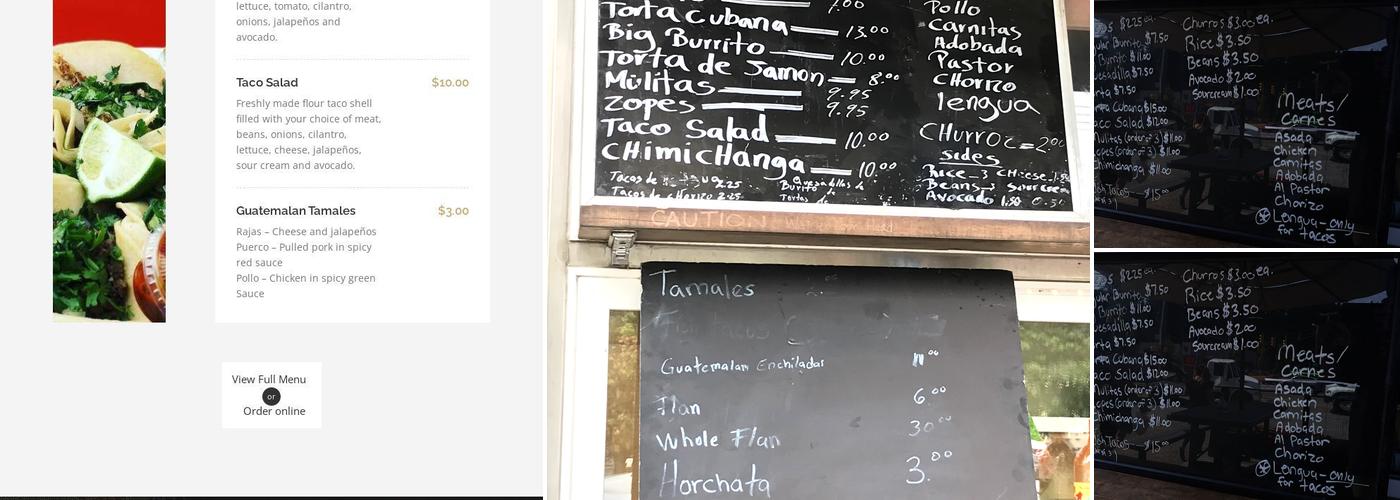 lettuce, tomato, cilantro,
onions, jalapeños and
avocado.
Taco Salad $10.00
Freshly made flour taco shell
filled with your choice of meat,
beans, onions, cilantro,
lettuce, cheese, jalapeños,
sour cream and avocado.
Guatemalan Tamales $3.00
Rajas – Cheese and jalapeños
Puerco – Pulled pork in spicy
red sauce
Pollo – Chicken in spicy green
Sauce
View Full Menu
or
Order online
Torta Cubana 13.00
Big Burrito 10.00
Torta de Jamon 8.00
Mulitas 9.95
Zopes 9.95
Taco Salad 10.00
CHimicHanga 10.00
Tacos de 2.25
Tacos de cHorizo 2.25
Burrito
Tortas de
Pollo
Carnitas
Adobada
Pastor
CHorizo
lengua
CHurro 2.00
Sides
Rice 3 CHeese 1.50
Beans 3 sour cream
Avocado 1.50 0.50
CAUTION
Tamales
Guatemalan Enchiladas 11.00
Flan 6.00
Whole Flan 30.00
Horchata 3.00
$2.25 ea.
Burrito $7.50
$11.00
$7.50
$7.50
Cubana $15.00
Salad $12.00
Mulitas (order of 3) $11.00
(order of 3) $11.00
$11.00
Tacos $15.00
Churros $3.00 ea.
Rice $3.50
Beans $3.50
Avocado $2.00
Sourcream $1.00
Meats/
Carnes
Asada
Chicken
Carnitas
Adobada
Al Pastor
Chorizo
Lengua - only
for tacos
$2.25 ea.
Burrito $7.50
$11.00
$7.50
$7.50
Cubana $15.00
Salad $12.00
Mulitas (order of 3) $11.00
(order of 3) $11.00
$11.00
Tacos $15.00
Churros $3.00 ea.
Rice $3.50
Beans $3.50
Avocado $2.00
Sourcream $1.00
Meats/
Carnes
Asada
Chicken
Carnitas
Adobada
Al Pastor
Chorizo
Lengua - only
for tacos